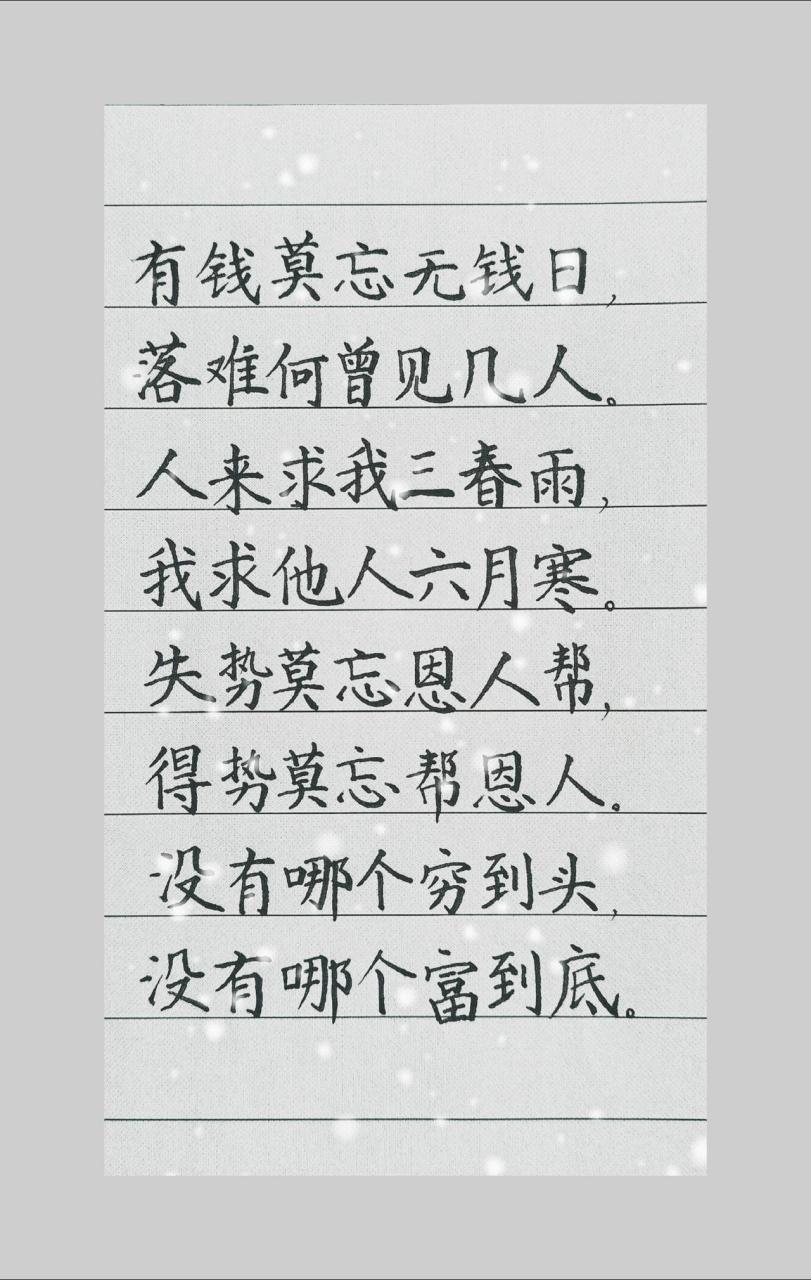 有钱莫忘无钱日,
落难何曾见几人。
人来求我三春雨,
我求他人六月寒。
失势莫忘恩人帮,
得势莫忘帮恩人。
没有哪个穷到头,
没有哪个富到底。